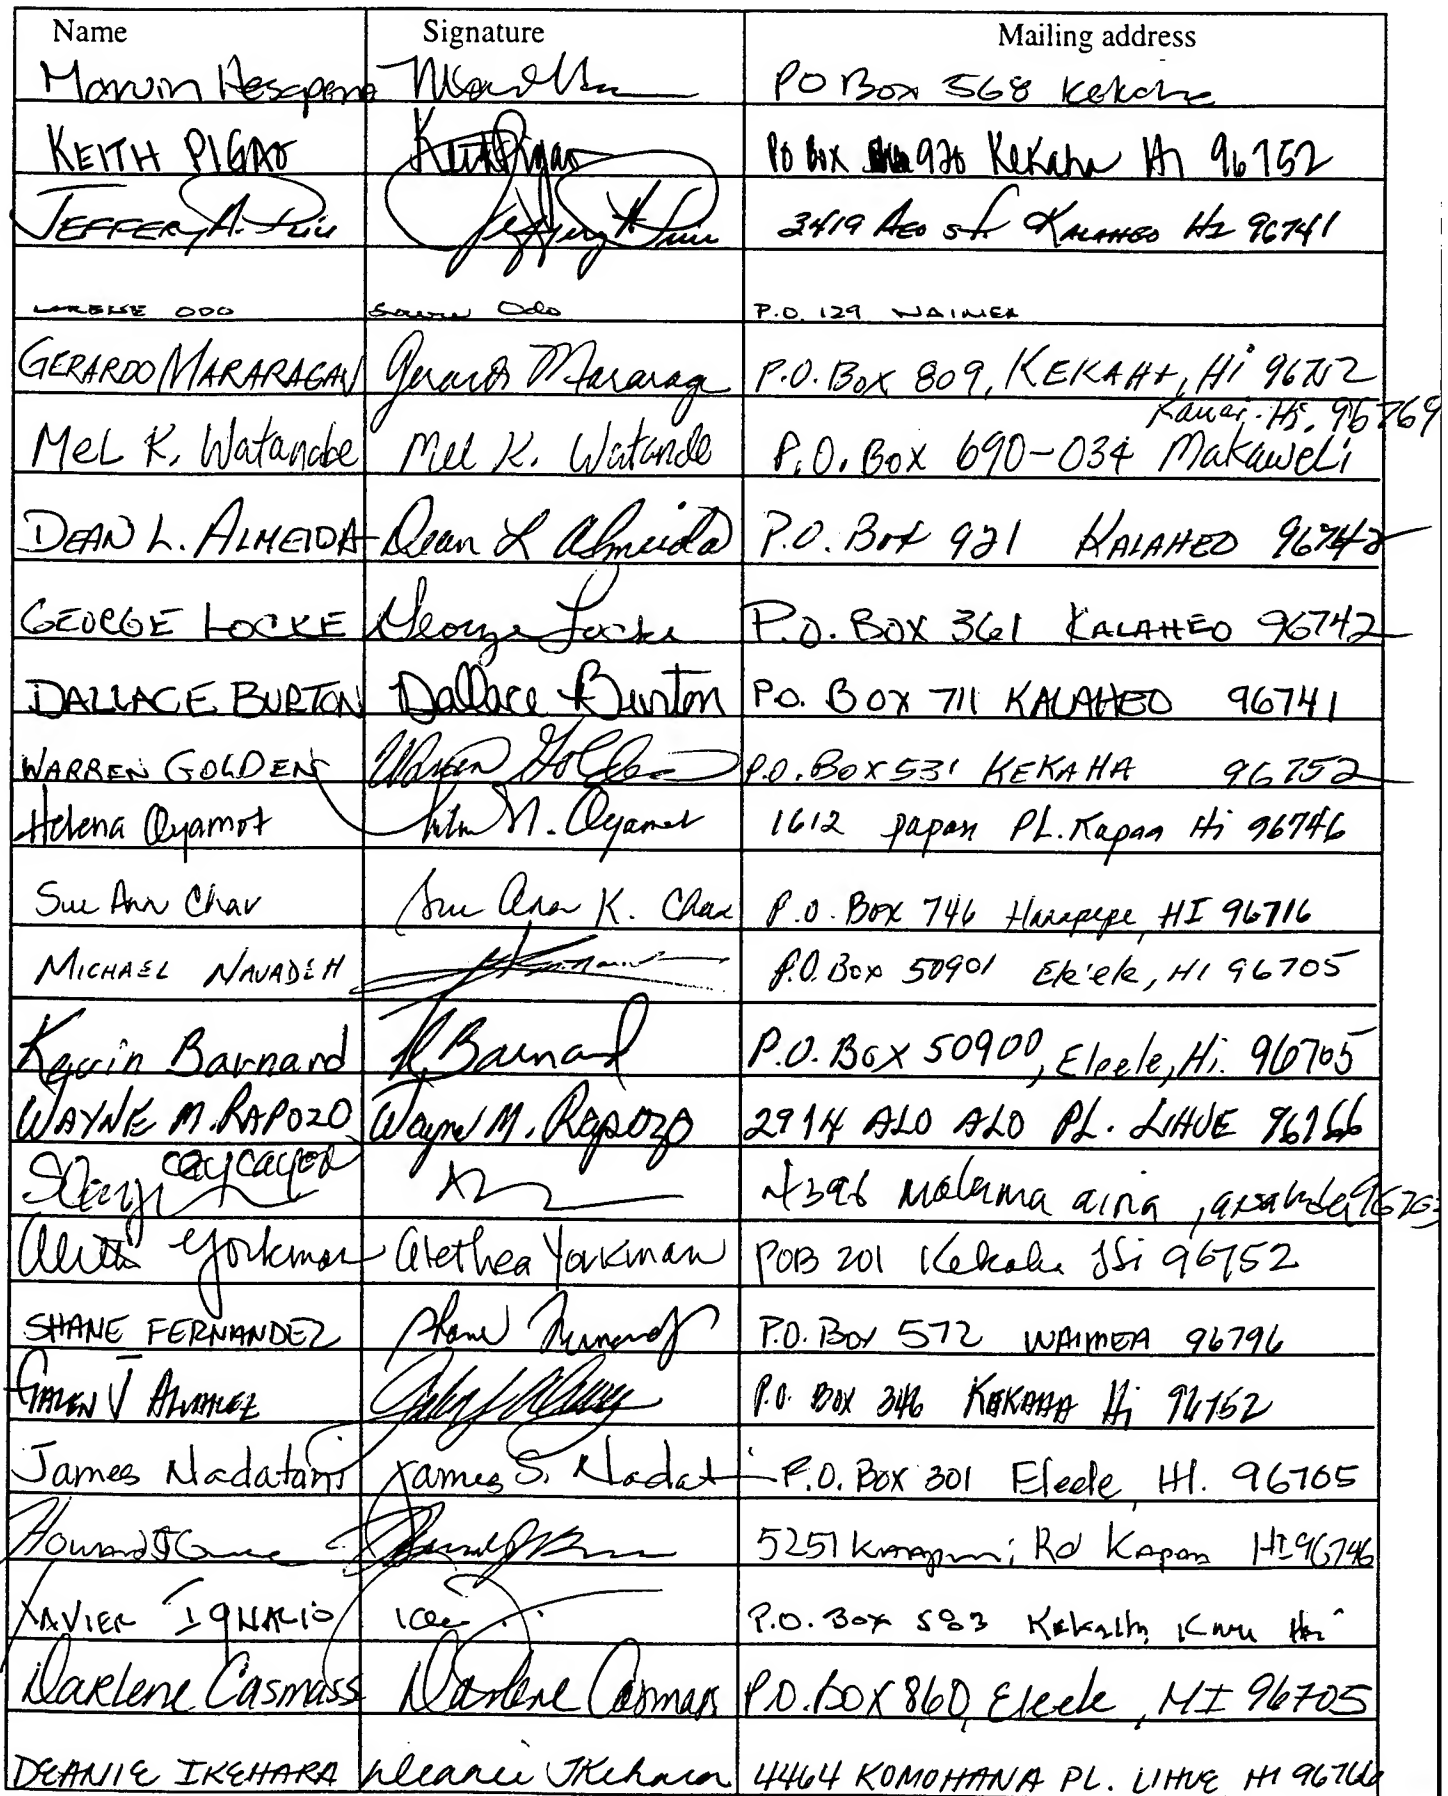 Name Signature Mailing address
Marvin Hesapene PO Box 568 Kekaha
KEITH PIGAO Keith Pigao PO BOX 920 Kekaha HI 96752
JEFFERY A. Puu Jeffery A Puu 2419 Aeo st KALAHEO HI 96741
LORENE ODO Odo P.O. 129 WAIMEA
GERARDO MARARAGAN Gerardo Mararaga P.O. Box 809, KEKAHA, Hi 96752
Kauai, Hi. 96769
Mel K. Watanabe Mel K. Watanabe P.O. Box 690-034 Makaweli
DEAN L. ALMEIDA Dean L Almeida P.O. Box 921 KALAHEO 96742
GEORGE LOCKE George Locke P.O. BOX 361 KALAHEO 96742
DALLACE BURTON Dallace Burton P.O. BOX 711 KALAHEO 96741
WARREN GOLDEN Warren Golden P.O. Box 531 KEKAHA 96752
Helena Oyamot N. Oyamot 1612 papau PL. Kapaa Hi 96746
Sue Ann Chav Sue Ann K. Chav P.O. Box 746 Hanapepe, HI 96716
MICHAEL NAVADEH P.O. Box 50901 Ele'ele, HI 96705
Kevin Barnard K Barnard P.O. Box 50900, Eleele, Hi. 96705
WAYNE M. RAPOZO Wayne M. Rapozo 2914 ALO ALO PL. LIHUE 96766
caycayon 4396 Malama aina, 96703
Yorkman Alethea Yorkman POB 201 Kekaha Hi 96752
SHANE FERNANDEZ Shane Fernandez P.O. Box 572 WAIMEA 96796
GALEN J ALVAREZ P.O. BOX 346 KEKAHA Hi 96752
James Nadatani James S. Nadat P.O. BOX 301 Eleele, HI. 96705
Howard 5251 Rd Kapaa HI 96746
XAVIER IGNACIO P.O. Box 583 Kekaha
Darlene Casmass Darlene Casmass P.O. BOX 860, Eleele, HI 96705
DEANIE IKEHARA Deanie Ikehara 4464 KOMOHANA PL. LIHUE HI 96766